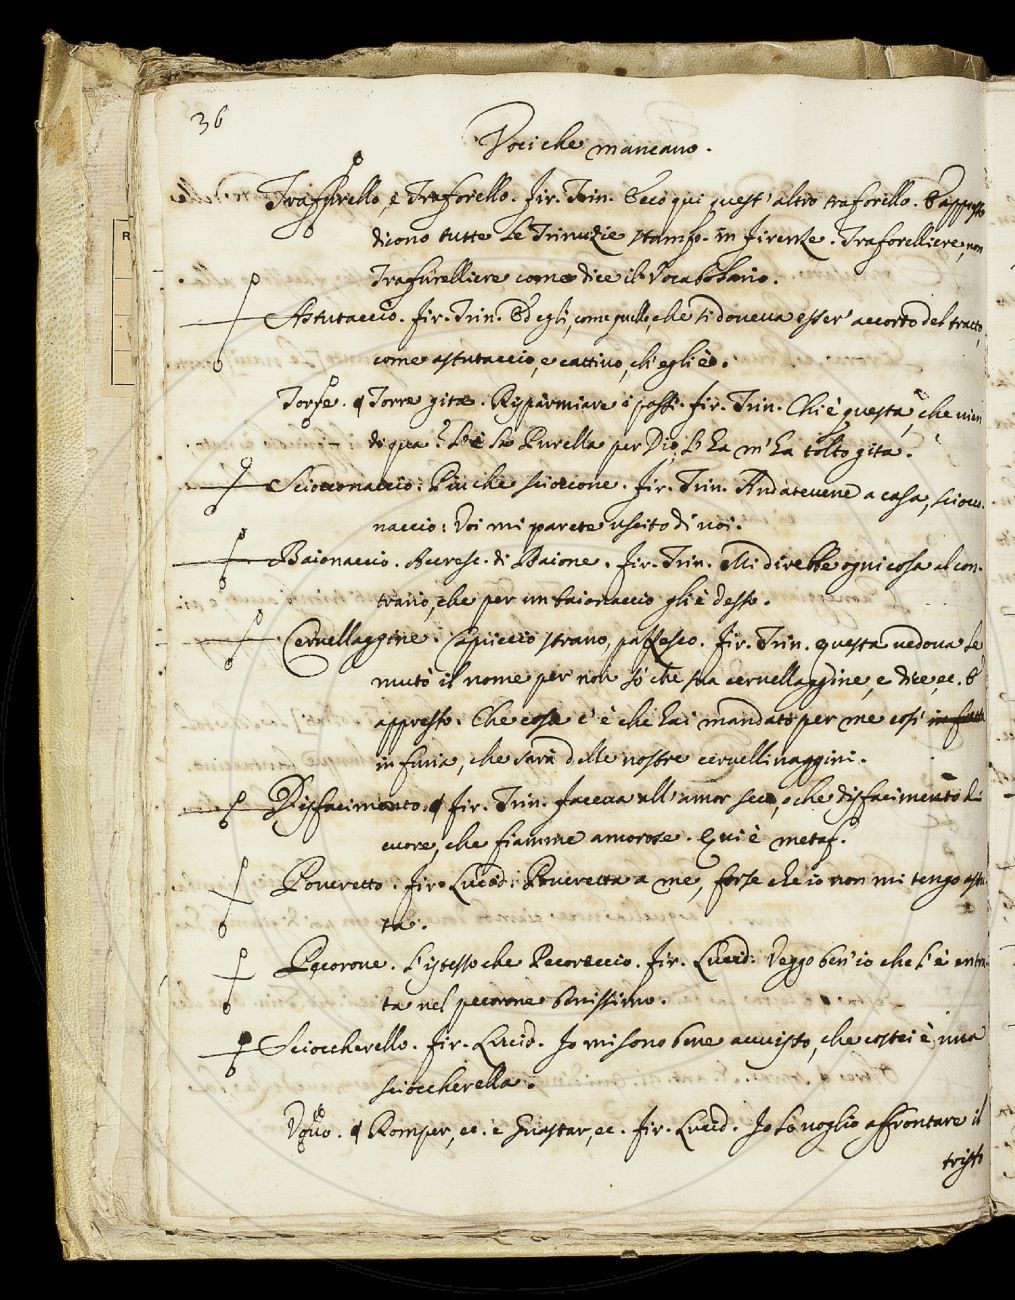 36
Voci che mancano.
Traffurello, e Traforello. Fir. Trin. Ecco qui quest' altro traforello. E appresso
dicono tutte le Trinuzie stamp. in Firenze. Traforelliere, non
Trafurelliere come dice il Vocabolario.
Astutaccio. Fir. Trin. Ed egli, come quello, che ti doveva esser' accorto del tratto,
come astutaccio, e cattivo, ch' egli è.
Torre. ¶ Torre gita. Risparmiare i passi. Fir. Trin. Chi è questa, che vien
di qua? L'è la Purella per Dio. Ella m' ha tolto gita.
Scioccionaccio: Più che scioccone. Fir. Trin. Andatevene a casa, sciocco-
naccio: Voi mi parete uscito di voi.
Baionaccio. Accresc. di Baione. Fir. Trin. Mi direbbe ogni cosa al con-
trario, che per un baionaccio gli è desso.
Cervellaggine. Capriccio strano, pazzesco. Fir. Trin. Questa vedova le
mutò il nome per non so che sua cervellaggine, e dice, ec. E
appresso. Che cosa c' è che hai mandato per me così
in furia, che sarà delle nostre cervellinaggini.
Disfacimento. ¶ Fir. Trin. Faceva all' amor seco, o che disfacimento di
cuore, che fiamme amorose. Qui è metaf.
Poveretto. Fir. Lucid: Poveretta a me, forse che io non mi tengo astu-
ta.
Pecorone. L'istesso che Pecoreccio. Fir. Lucid: Veggo ben' io che l' è entra-
ta nel pecorone benissimo.
Scioccherello. Fir. Lucid. Io mi sono bene avvisto, che costei è una
scioccherella.
Vovo. ¶ Romper, ec. e Guastar, ec. Fir. Lucid. Io lo voglio affrontare il
tristo